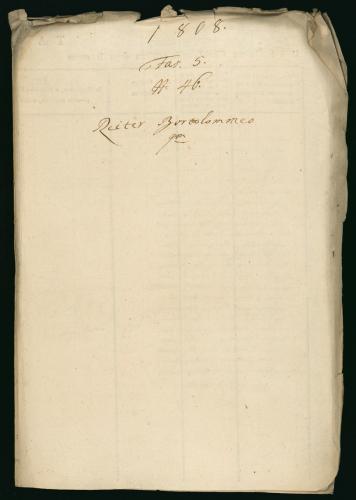 1808.
Fas. 5.
N. 46.
Reiter Bortolommeo